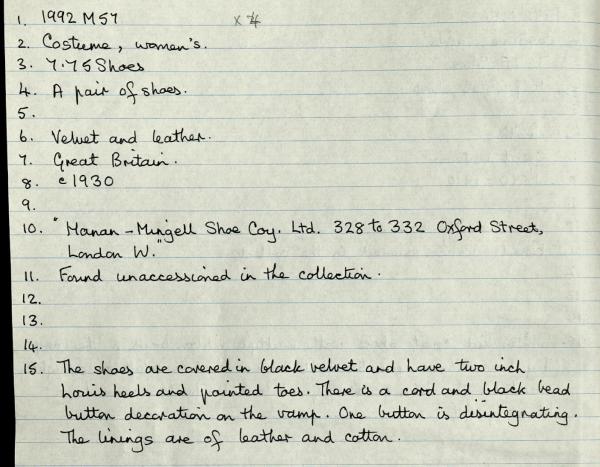 1. 1992 M57 x 4
2. Costume, women's.
3. 7.75 Shoes
4. A pair of shoes.
5.
6. Velvet and leather.
7. Great Britain.
8. c1930
9.
10. "Manan-Mingell Shoe Coy. Ltd. 328 to 332 Oxford Street,
London W."
11. Found unaccessioned in the collection.
12.
13.
14.
15. The shoes are covered in black velvet and have two inch
Louis heels and pointed toes. There is a cord and black bead
button decoration on the vamp. One button is disintegrating.
The linings are of leather and cotton.